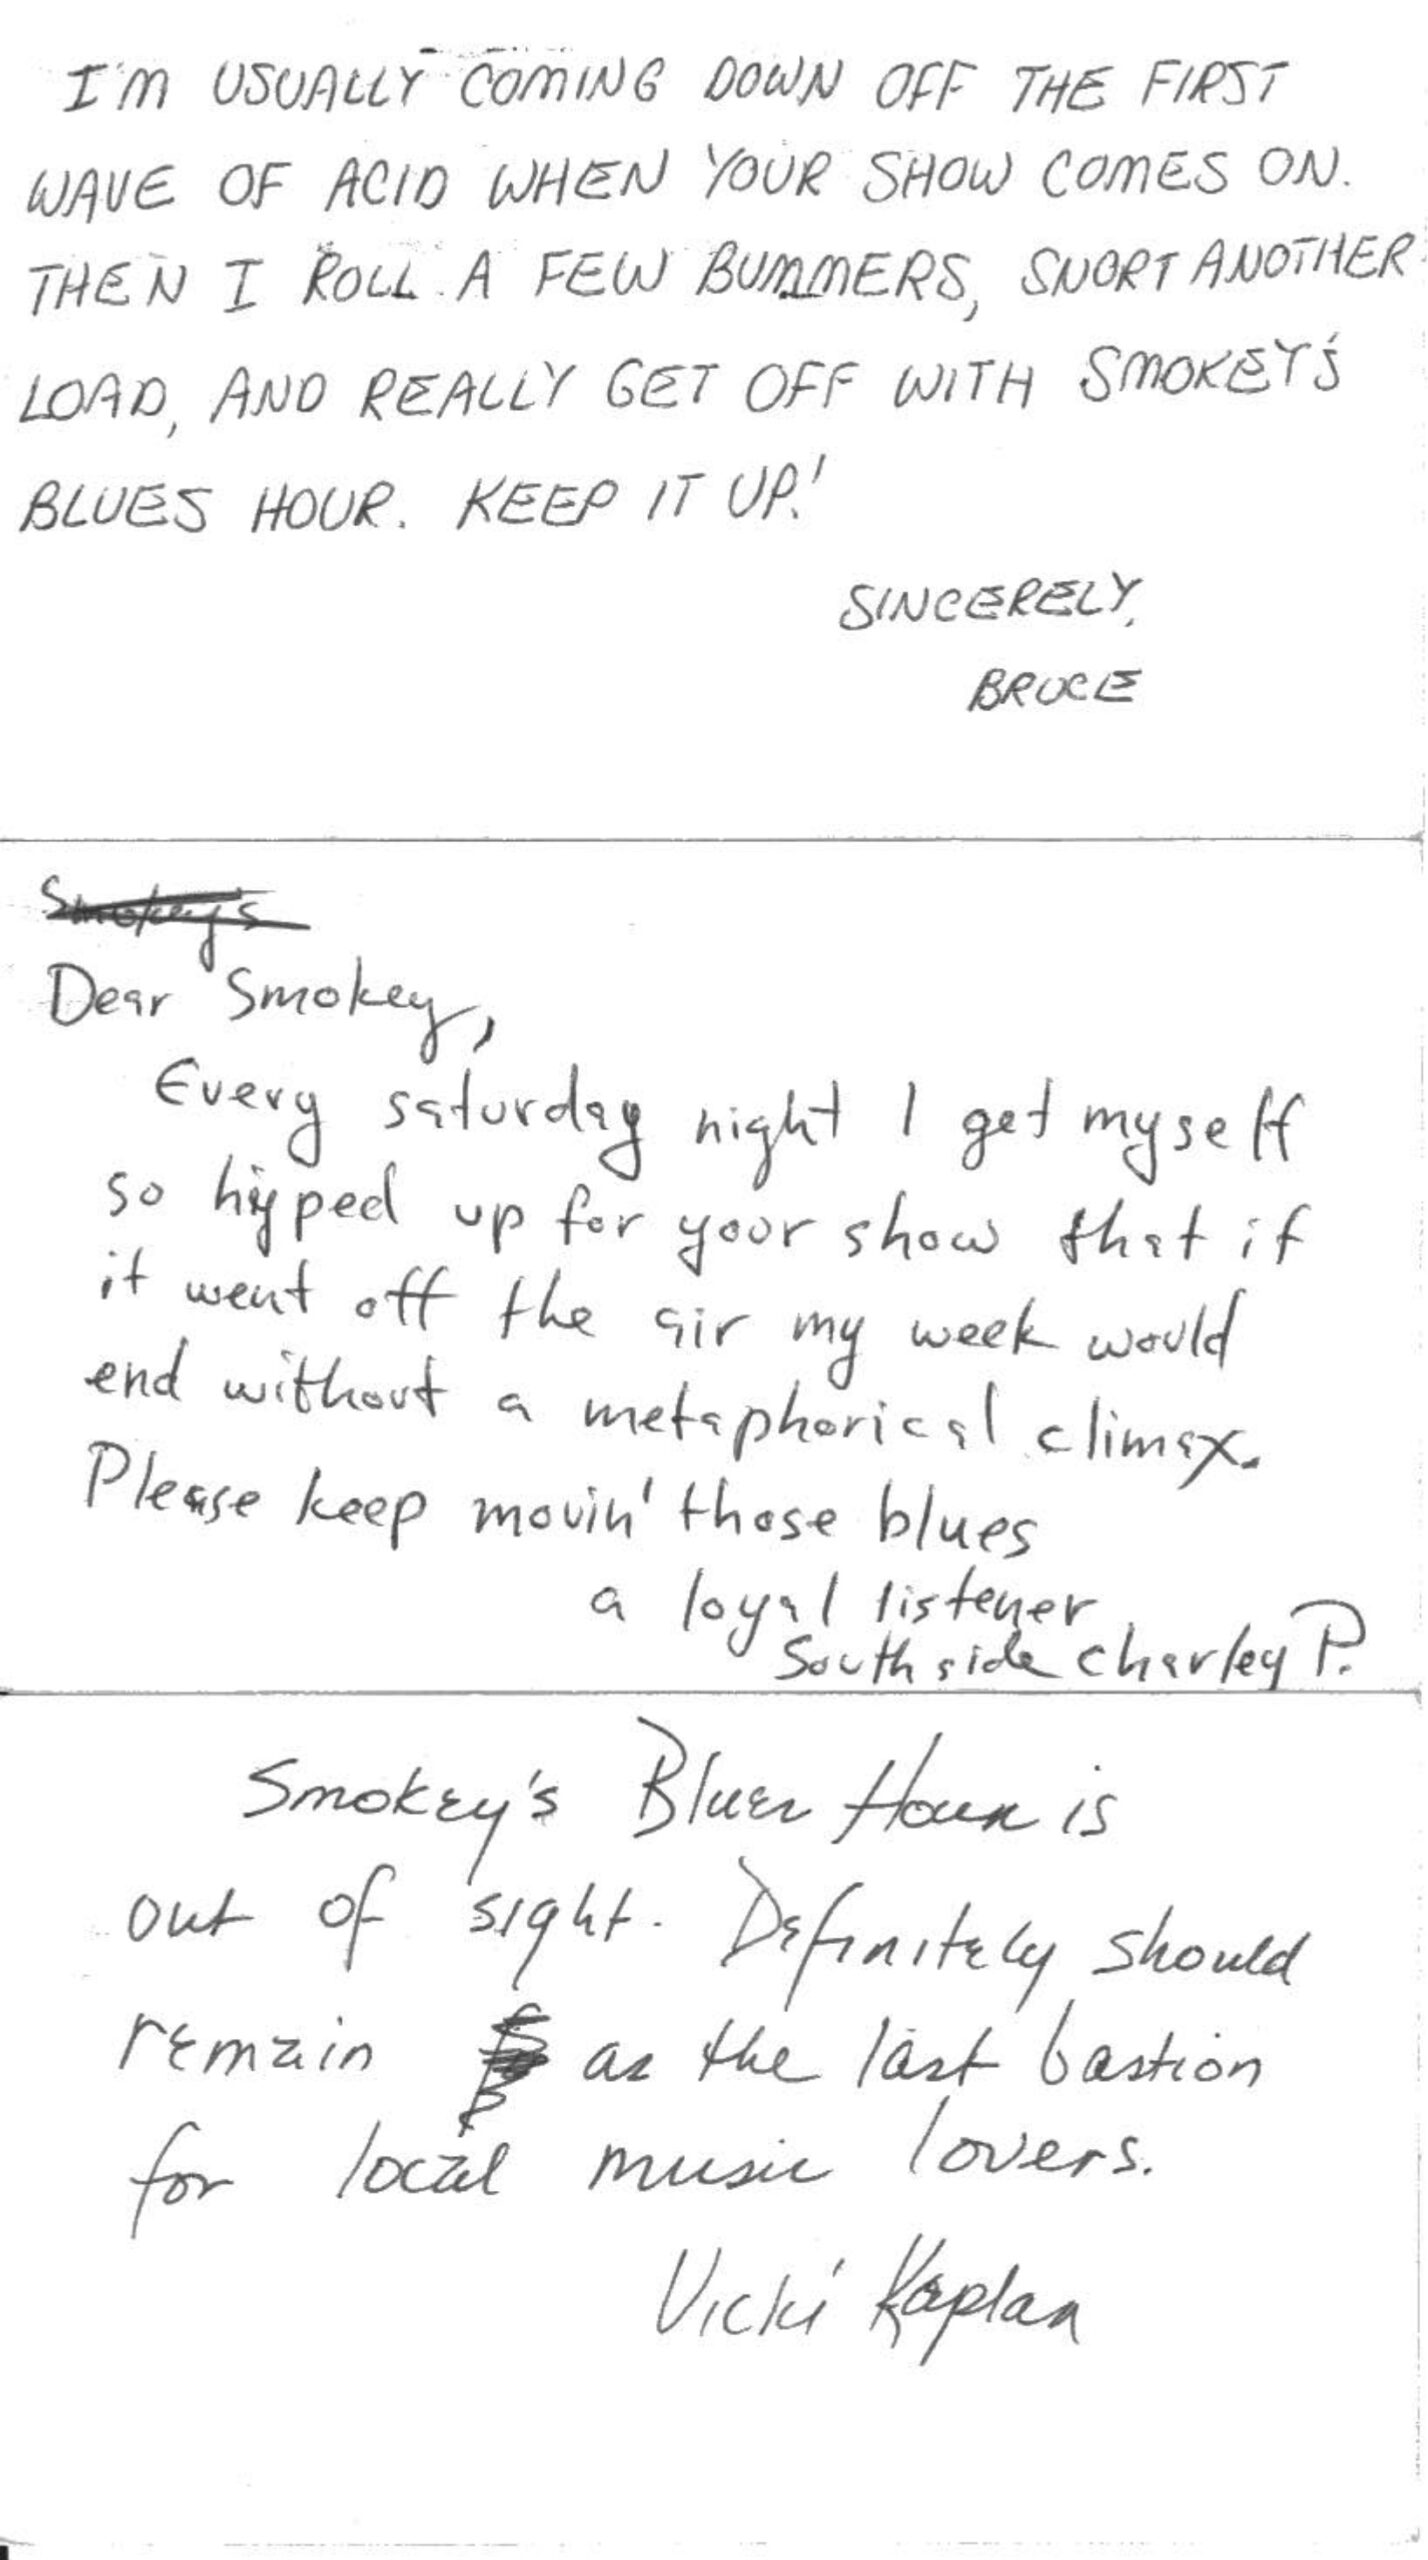 I'M USUALLY COMING DOWN OFF THE FIRST
WAVE OF ACID WHEN YOUR SHOW COMES ON.
THEN I ROLL A FEW BUMMERS, SNORT ANOTHER
LOAD, AND REALLY GET OFF WITH SMOKEY'S
BLUES HOUR. KEEP IT UP!
SINCERELY,
BRUCE
Smokey's
Dear Smokey,
Every saturday night I get myself
so hyped up for your show that if
it went off the air my week would
end without a metaphorical climax.
Please keep movin' those blues
a loyal listener
Southside Charley P.
Smokey's Blues Hour is
out of sight. Definitely should
remain as the last bastion
for local music lovers.
Vicki Kaplan